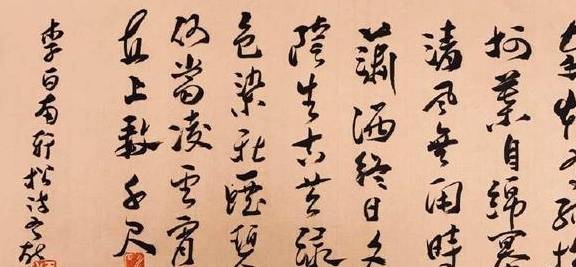 柯葉自綿冪
清風無閑時
蕭洒終日夕
陰生古苔綠
色染秋煙碧
何當凌雲霄
直上數千尺
李白南軒松詩